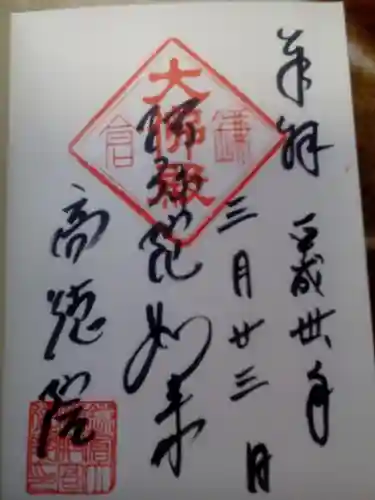 奉拝 平成卅年
三月廿三日
大佛殿
鎌倉
阿弥陀如来
高徳院